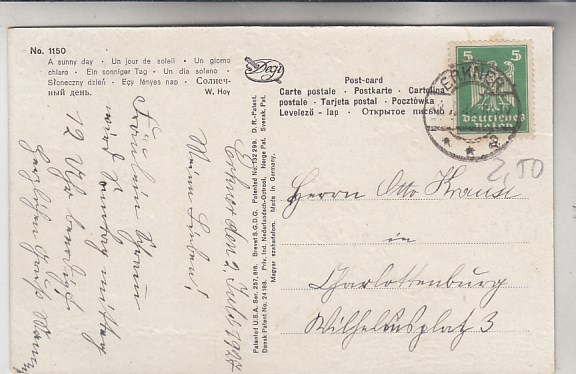 No. 1150
A sunny day · Un jour de soleil · Un giorno
chiaro · Ein sonniger Tag · Un dia solano ·
Słoneczny dzień · Egy fényes nap · Солнеч-
ный день.
W. Hoy
Degi
Post-card
Carte postale · Postkarte · Cartolina
postale · Tarjeta postal · Pocztówka
Levelező - lap · Открытое письмо
5 5
Deutsches
Reich
ERKNER
2,50
Herrn Otto Krause
in
Charlottenburg
Wilhelmsplatz 3
Erkner den 2. Juli 1927
Meine Lieben!
wird Sonntag mittag
12 Uhr
Patented U.S.A. Ser. 257, 916. Brevet S.G.D.G. Patented No. 132 299. D. R.-Patent.
Dansk Patent No. 24 198. Priv. Ind. Nederlandsch-Octrooi. Norge Pat. Svensk. Pat.
Magyar szabadalom. Made in Germany.